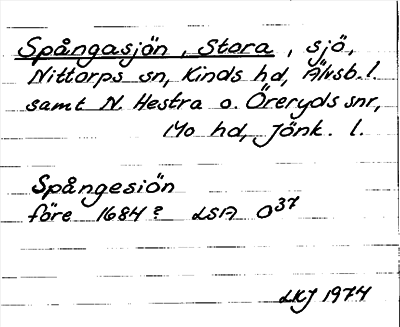 Spångasjön, Stora, sjö,
Nittorps sn, Kinds hd, Älvsb. l.
samt N. Hestra o. Öreryds snr,
Mo hd, Jönk. l.
Spångesiön
före 1684? LSA O37
LKJ 1974